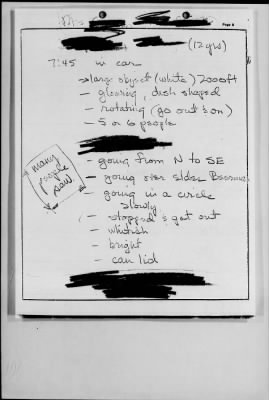 Page 8
(12 yrs)
7:45 in car
→ large object (white) 2000ft
- glowing, dish shaped
- rotating (go out & on)
- 5 or 6 people
- going from N to SE
many people saw
- going over
- going in a circle
slowly
- stopped & got out
- whitish
- bright
- can lid